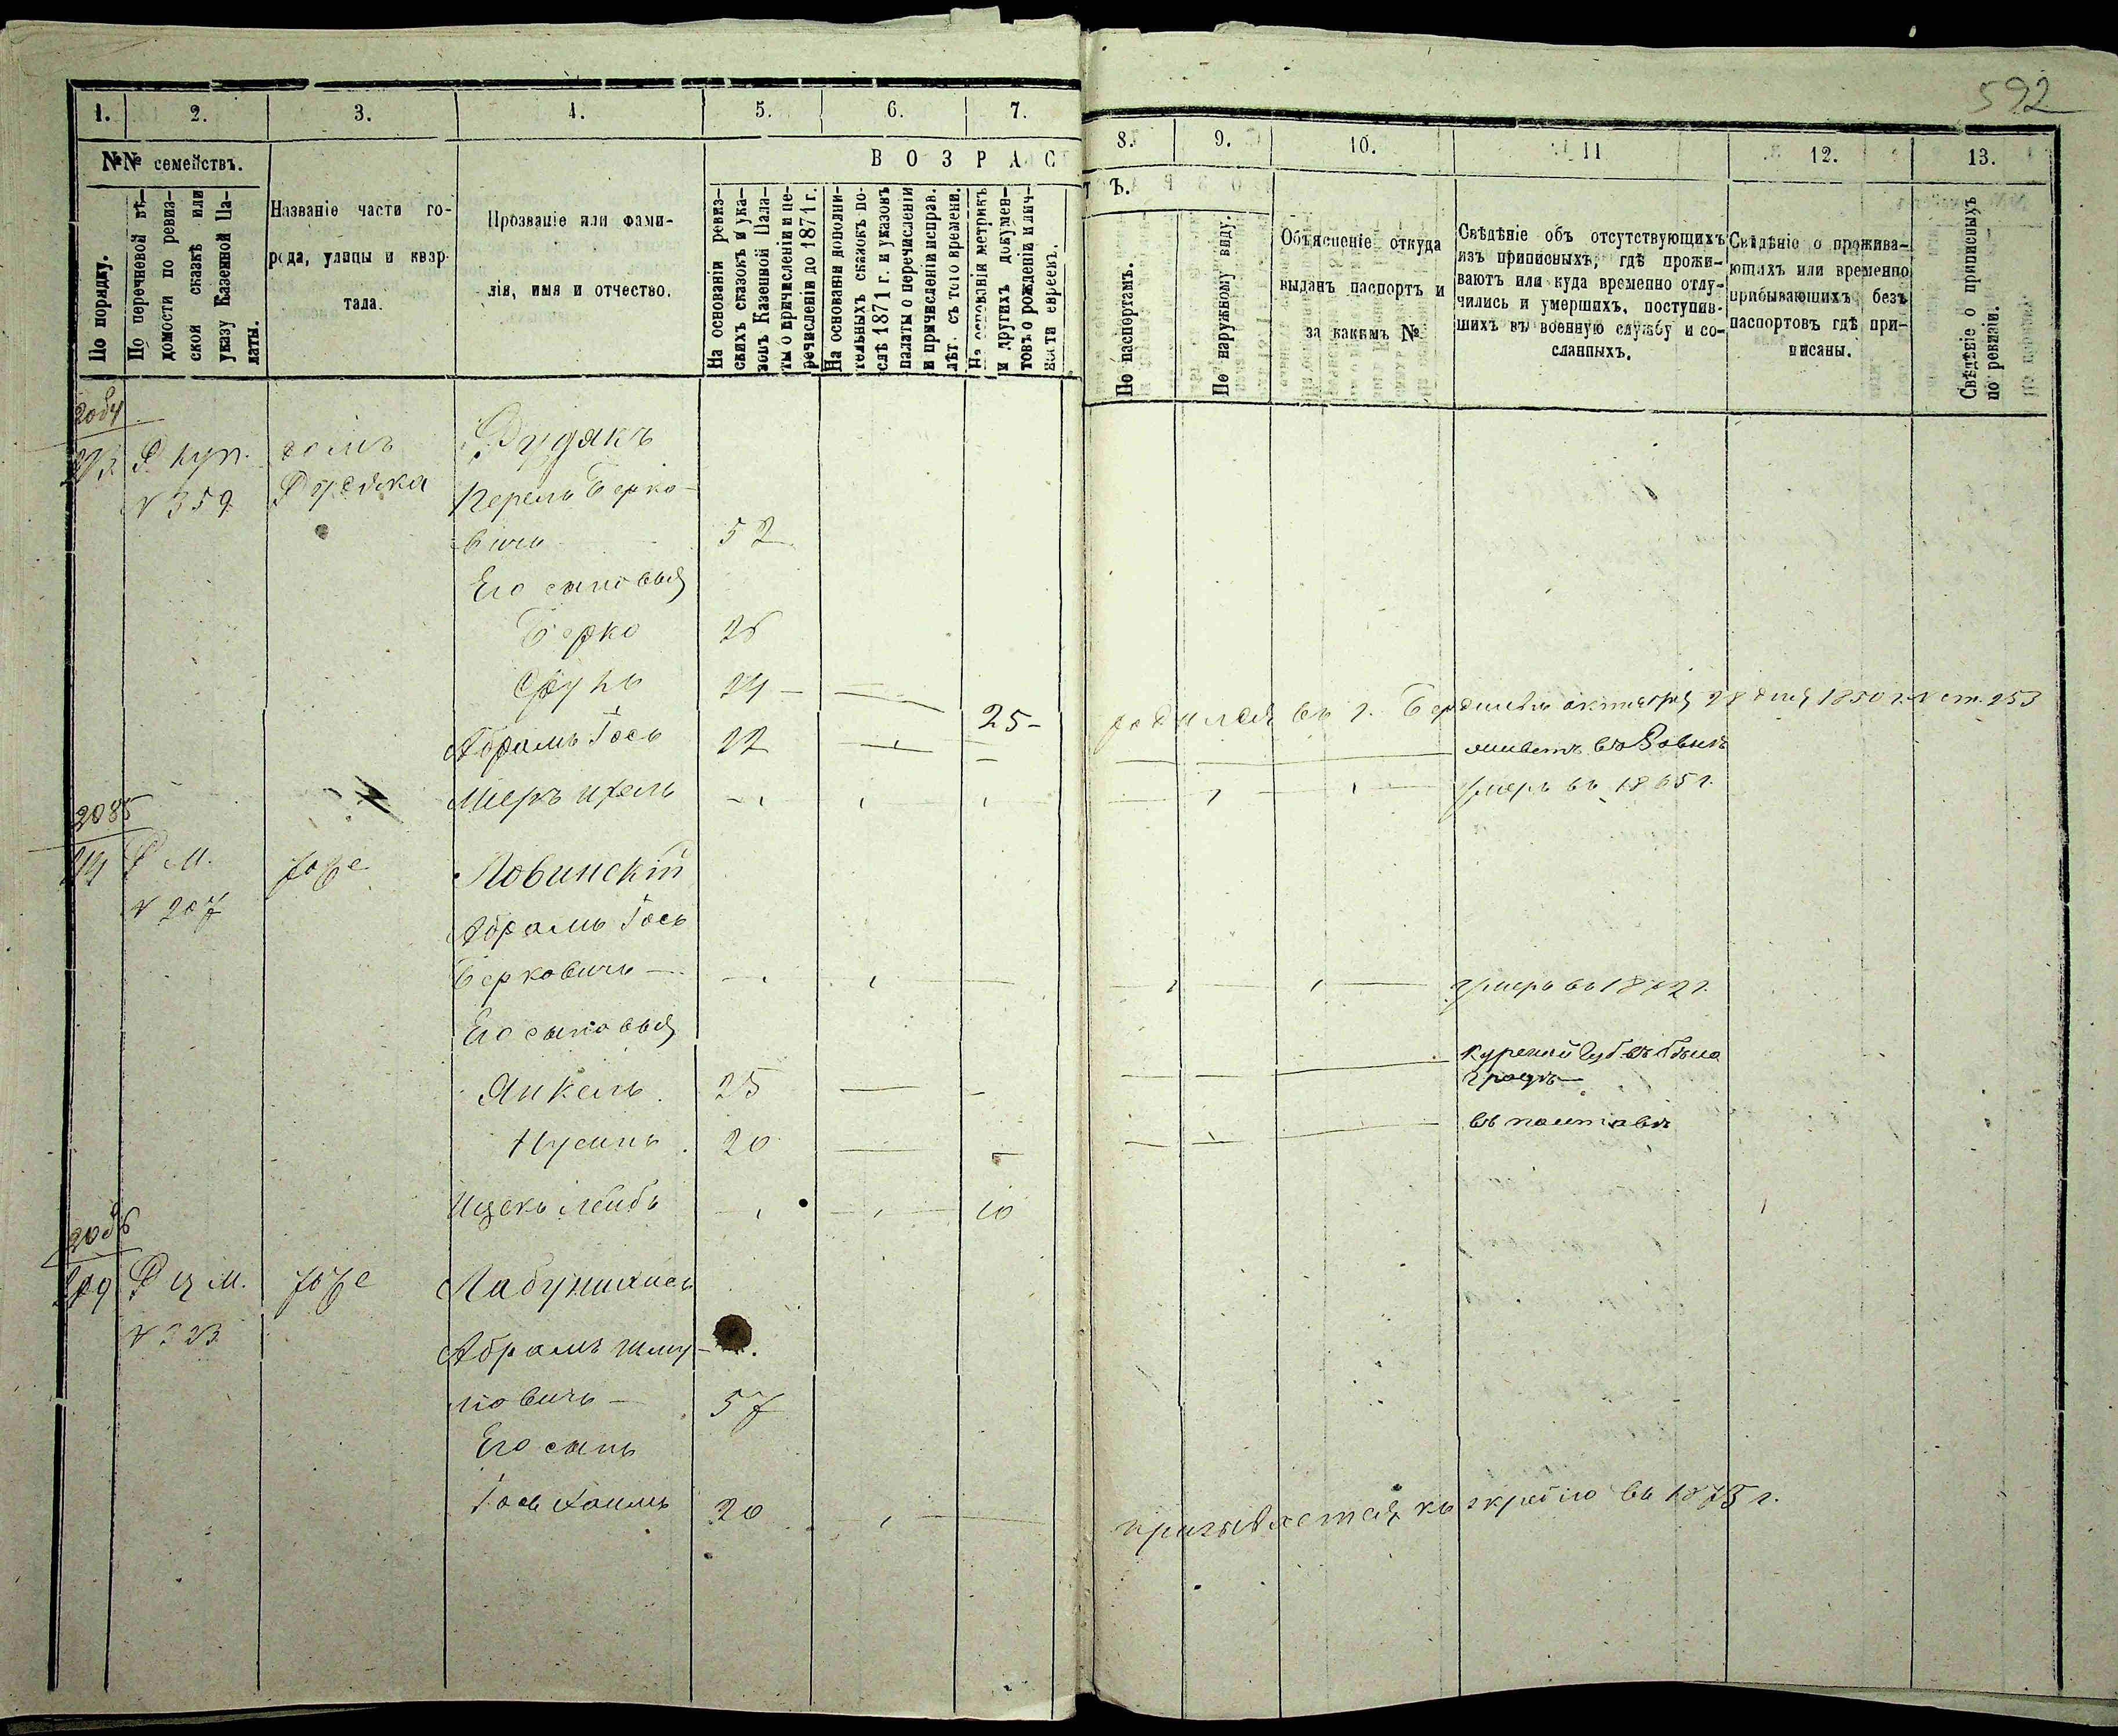 592
1. 2. 3. 4. 5. 6. 7. 8. 9. 10. 11 12. 13.
№№ семействъ.
По порядку.
По перечневой вѣ-
домости по ревиз-
ской сказкѣ или
указу Казенной Па-
латы.
Названіе части го-
рода, улицы и квар-
тала.
Прозваніе или фами-
лія, имя и отчество.
ВОЗРАС
ТЪ.
На основаніи ревиз-
скихъ сказокъ и ука-
зовъ Казенной Пала-
ты о причисленіи и пе-
речисленіи до 1871 г.
На основаніи дополни-
тельныхъ сказокъ по-
слѣ 1871 г. и указовъ
палаты о перечисленіи
и причисленіи исправ.
лѣт. съ того времени.
На основаніи метрикъ
и другихъ докумен-
товъ о рожденіи и лич-
ности евреевъ.
По паспортамъ.
По наружному виду.
Объясненіе откуда
выданъ паспортъ и
за какимъ №
Свѣдѣніе объ отсутствующихъ
изъ приписныхъ, гдѣ прожи-
ваютъ или куда временно отлу-
чились и умершихъ, поступив-
шихъ въ военную службу и со-
сланныхъ.
Свѣдѣніе о прожива-
ющихъ или временно
прибывающихъ безъ
паспортовъ гдѣ при-
писаны.
Свѣдѣніе о приписныхъ
по ревизіи.
2084
Р. куп. домъ Рудяка
№ 359
Рудякъ
Перель Берко-
вичъ 52
Его сыновья
Берко 26
Сруль 24 —
25 - родился въ г. Бердичевѣ октября 28 дня 1850 г. № ст. 253
Абрамъ Іось 22 живетъ въ Ровнѣ
Меръ Ицель умеръ въ 1865 г.
2085
Р М. тоже Ловинскій
№ 207
Абрамъ Іось
Берковичъ — умеръ въ 1872 г.
Его сыновья
Янкель 25 Курской Губ. въ Бѣло
градѣ
Нусинъ 20 въ Полтавѣ
Ицекъ Лейбъ 10
2086
Р Ц М. тоже
№ 323
Абрамъ Шму-
ловичъ — 57
Его сынъ
Іось Хаимъ 20 призывается къ жребію въ 1875 г.